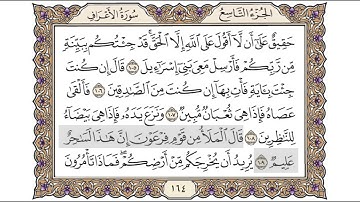 الجزء التاسع
سورة الأعراف
حَقِيقٌ عَلَىٰٓ أَن لَّآ أَقُولَ عَلَى ٱللَّهِ إِلَّا ٱلْحَقَّ ۚ قَدْ جِئْتُكُم بِبَيِّنَةٍ
مِّن رَّبِّكُمْ فَأَرْسِلْ مَعِىَ بَنِىٓ إِسْرَٰٓءِيلَ ١٠٥ قَالَ إِن كُنتَ
جِئْتَ بِـَٔايَةٍ فَأْتِ بِهَآ إِن كُنتَ مِنَ ٱلصَّٰدِقِينَ ١٠٦ فَأَلْقَىٰ
عَصَاهُ فَإِذَا هِىَ ثُعْبَانٌ مُّبِينٌ ١٠٧ وَنَزَعَ يَدَهُۥ فَإِذَا هِىَ بَيْضَآءُ
لِلنَّٰظِرِينَ ١٠٨ قَالَ ٱلْمَلَأُ مِن قَوْمِ فِرْعَوْنَ إِنَّ هَٰذَا لَسَٰحِرٌ
عَلِيمٌ ١٠٩ يُرِيدُ أَن يُخْرِجَكُم مِّنْ أَرْضِكُمْ ۖ فَمَاذَا تَأْمُرُونَ
١٦٤